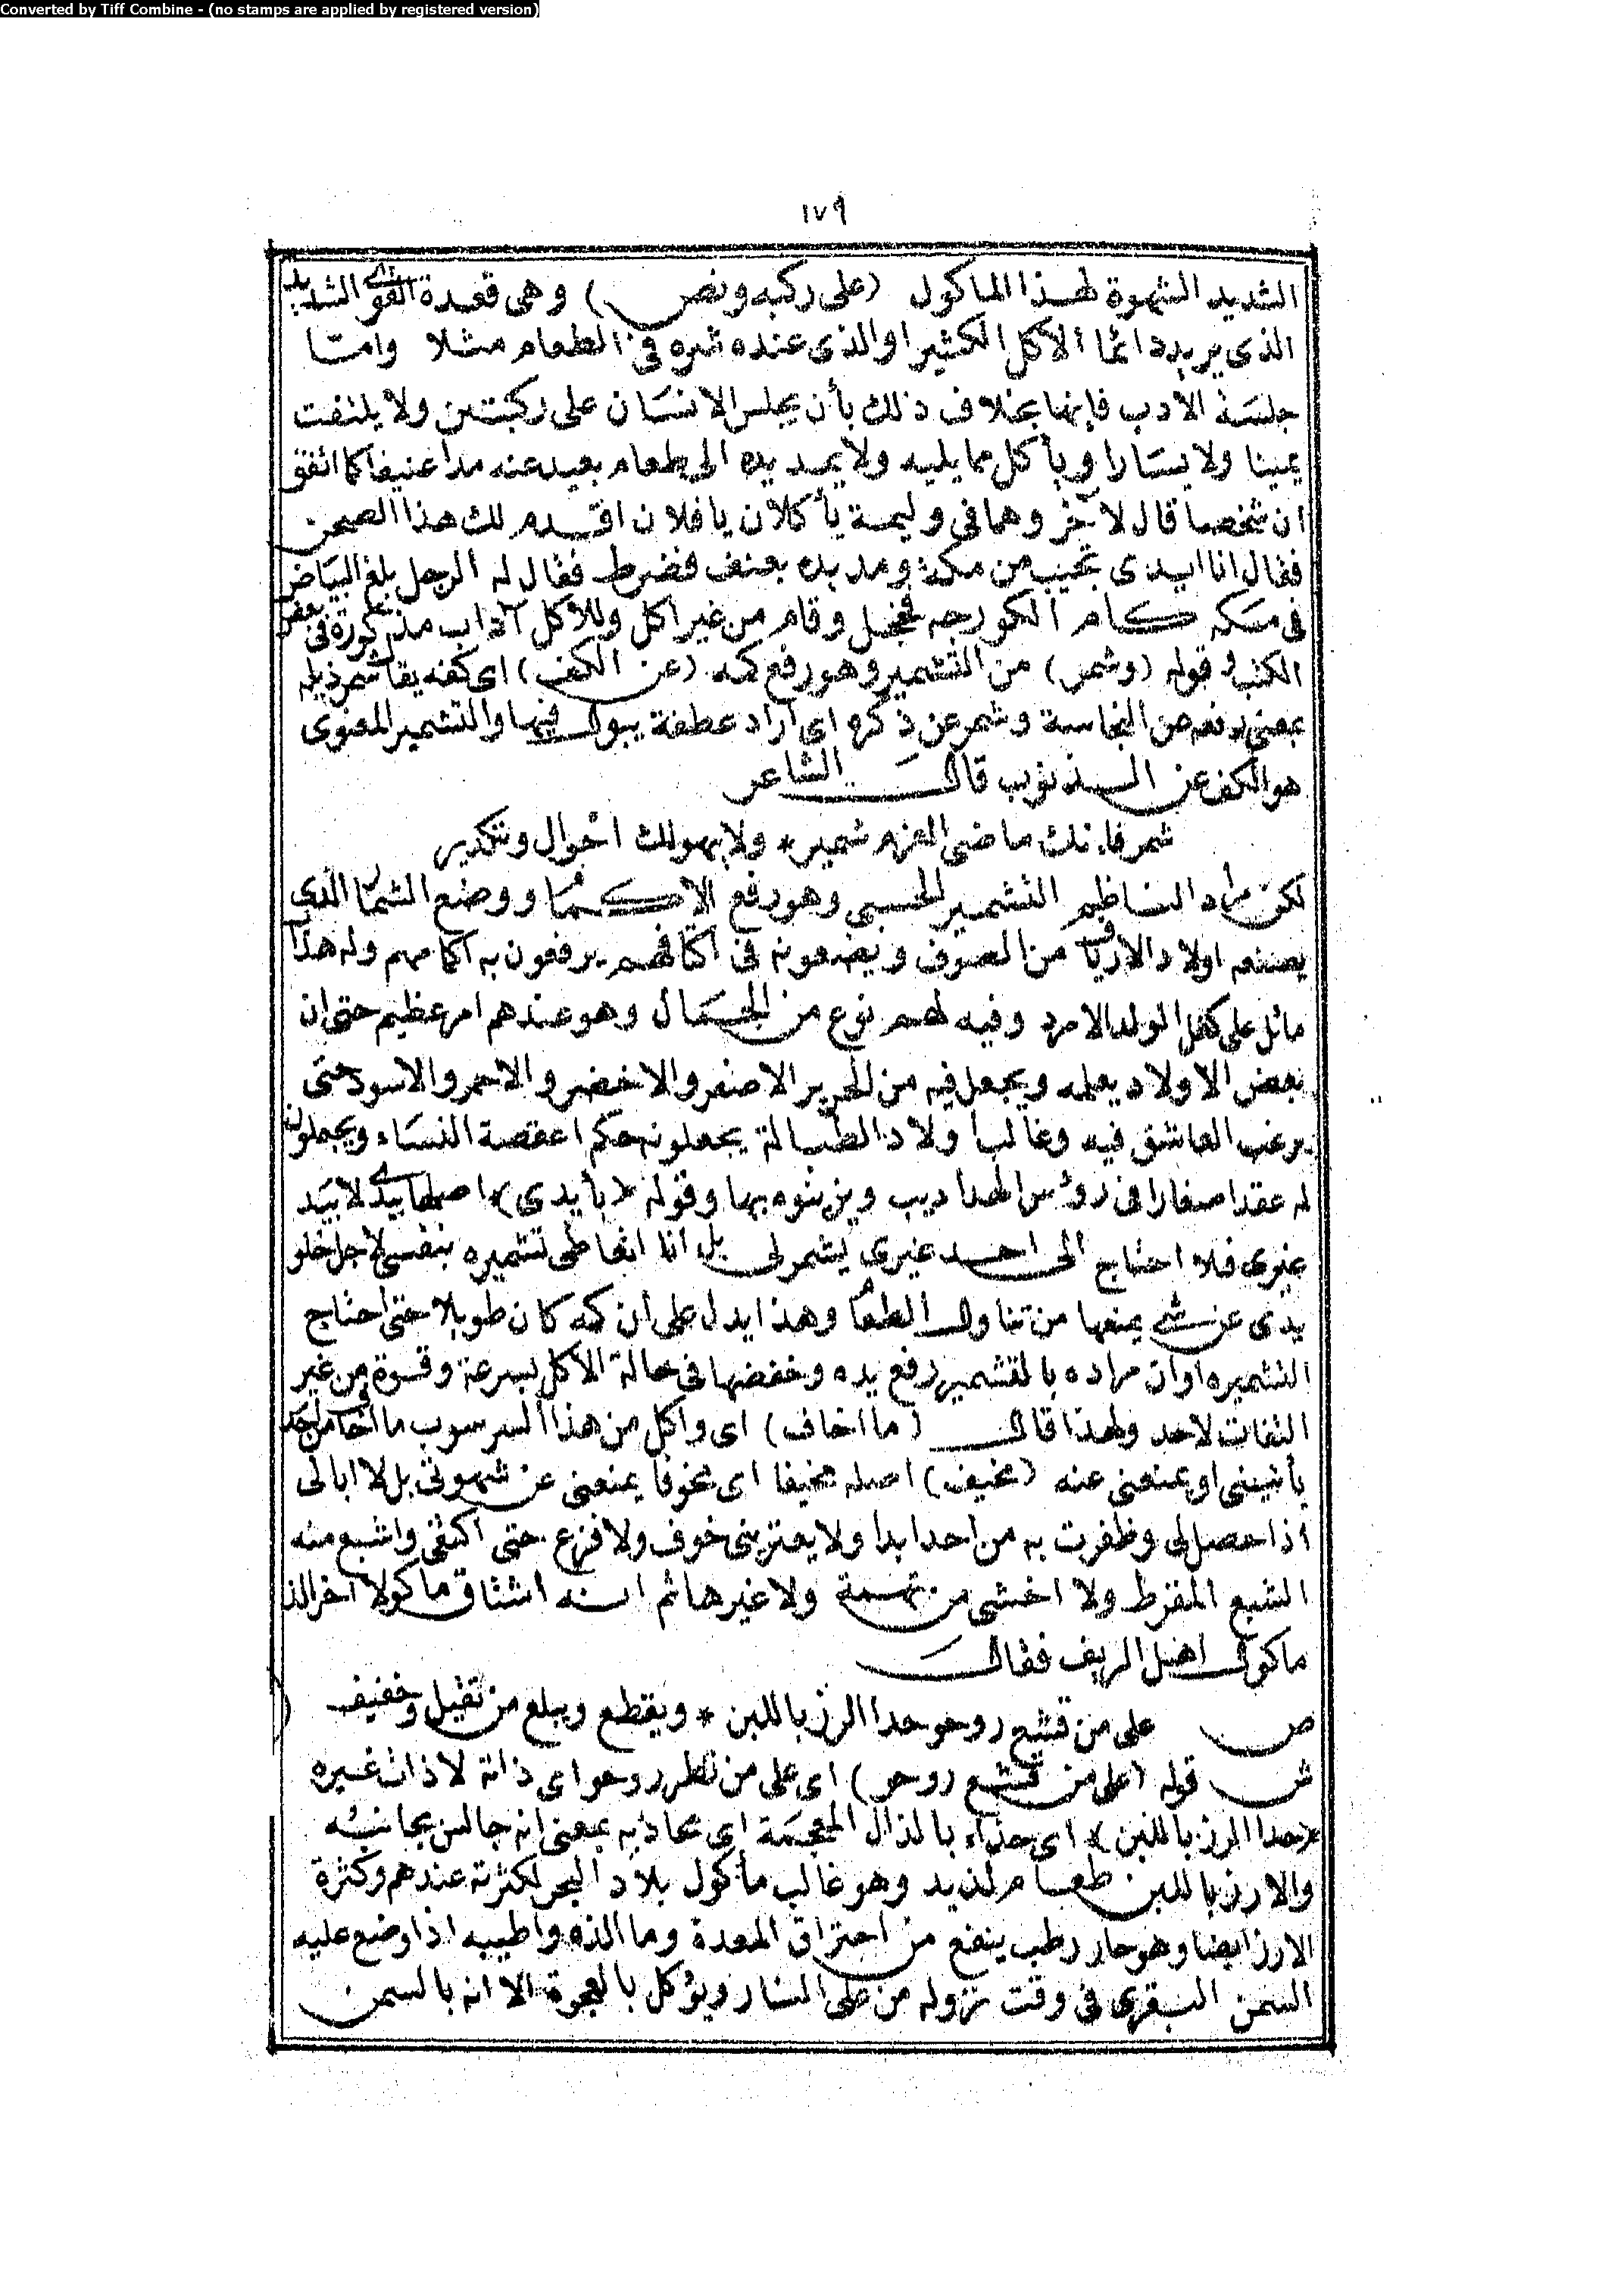 Converted by Tiff Combine - (no stamps are applied by registered version)
١٧٩
الشديد الشهوة لهذا الماكول (على ركبه ونص) وهى قعدة القوى الشديد
الذى يريد دائما الأكل الكثير او الذى عنده شره فى الطعام مثلا وامّا
جلسة الأدب فإنها بخلاف ذلك بأن يجلس الانسان على ركبتين ولا يلتفت
يمينا ولا يسارا ويأكل مما يليه ولا يمد يده الى طعام بعيد عنه مدا عنيفا كما اتفق
ان شخصا قال لآخر وهما فى وليمة يأكلان يا فلان اقدم لك هذا الصحن
فقال انا ايدى تجيب من مكة ومد يده بعنف فضرط فقال له الرجل بلغ البياض
فى مكه كام الكورجه فخجل وقام من غير اكل وللأكل آداب مذكورة فى بعض
الكتب وقوله (وشمر) من التشمير وهو رفع كمه (عن الكف) اى كفه يقال شمر ذيله
بمعنى رفعه من النجاسة وشمر عن ذكره اى اراد عطفة يبول فيها والتشمير المعنوى
هو الكف عن الذنوب قال الشاعر
شمر فإنك ماضى العزم شمير * ولا يهولك احوال وتكدير
لكن مراد الناظم التشمير الحسى وهو رفع الاكمام ووضع الشمار الذى
يصنعه اولاد الارياف من الصوف ويضعونه فى اكتافهم يرفعون به اكمامهم وله هذا
مائل على كفل الولد الامرد وفيه لهم نوع من الجمال وهو عندهم امر عظيم حتى ان
بعض الاولاد يعلمه ويجعل فيه من الحرير الاصفر والاخضر والاحمر والاسود حتى
يرغب العاشق فيه وغالب اولاد الطبالة يجعلونه حكم اعقصة النساء ويجعلون
له عقدا صغارا فى رؤس الهداديب ويزينوه بها وقوله (بأيدى) اصلها بيدى لا بيد
غيرى فلا احتاج الى احد غيرى يشمر لى بل انا اتعاطى تشميره بنفسى لأجل خلو
يدى عن شئ يمنعها من تناول الطعام وهذا يدل على ان كمه كان طويلا حتى احتاج
لتشميره او ان مراده بالتشمير رفع يده وخفضها فى حالة الأكل بسرعة وقسوة من غير
التفات لاحد ولهذا قال (ما اخاف) اى واكل من هذا السرسوب ما اخاف من احد
يأتينى او يمنعنى عنه (مخيف) اصله مخيفا اى مخوفا يمنعنى عن شهوتى بل لا ابالى
اذا حصل لى وظفرت به من احد ابدا ولا يعترينى خوف ولا فزع حتى اكتفى واشبع منه
الشبع المفرط ولا اخشى من تهمة ولا غيرها ثم انه اشتاق ماكولا آخر الذ
ماكول اهل الريف فقال
ص على من قشع روحو حدا الرز باللبن * ويقطع ويبلع من ثقيل وخفيف
ش قوله (على من قشع روحو) اى على من نظر روحو اى ذاته لا ذات غيره
(حدا الرز باللبن) اى حذاء بالذال المعجمة اى محاذيه بمعنى انه جالس بجانبه
والارز باللبن طعام لذيذ وهو غالب مأكول بلاد البحر لكثرته عندهم وكثرة
الارز ايضا وهو حار رطب ينفع من احتراق المعدة وما الذه واطيبه اذا وضع عليه
السمن البقرى فى وقت نزوله من على النار ويؤكل بالعجوة الا انه بالسمن